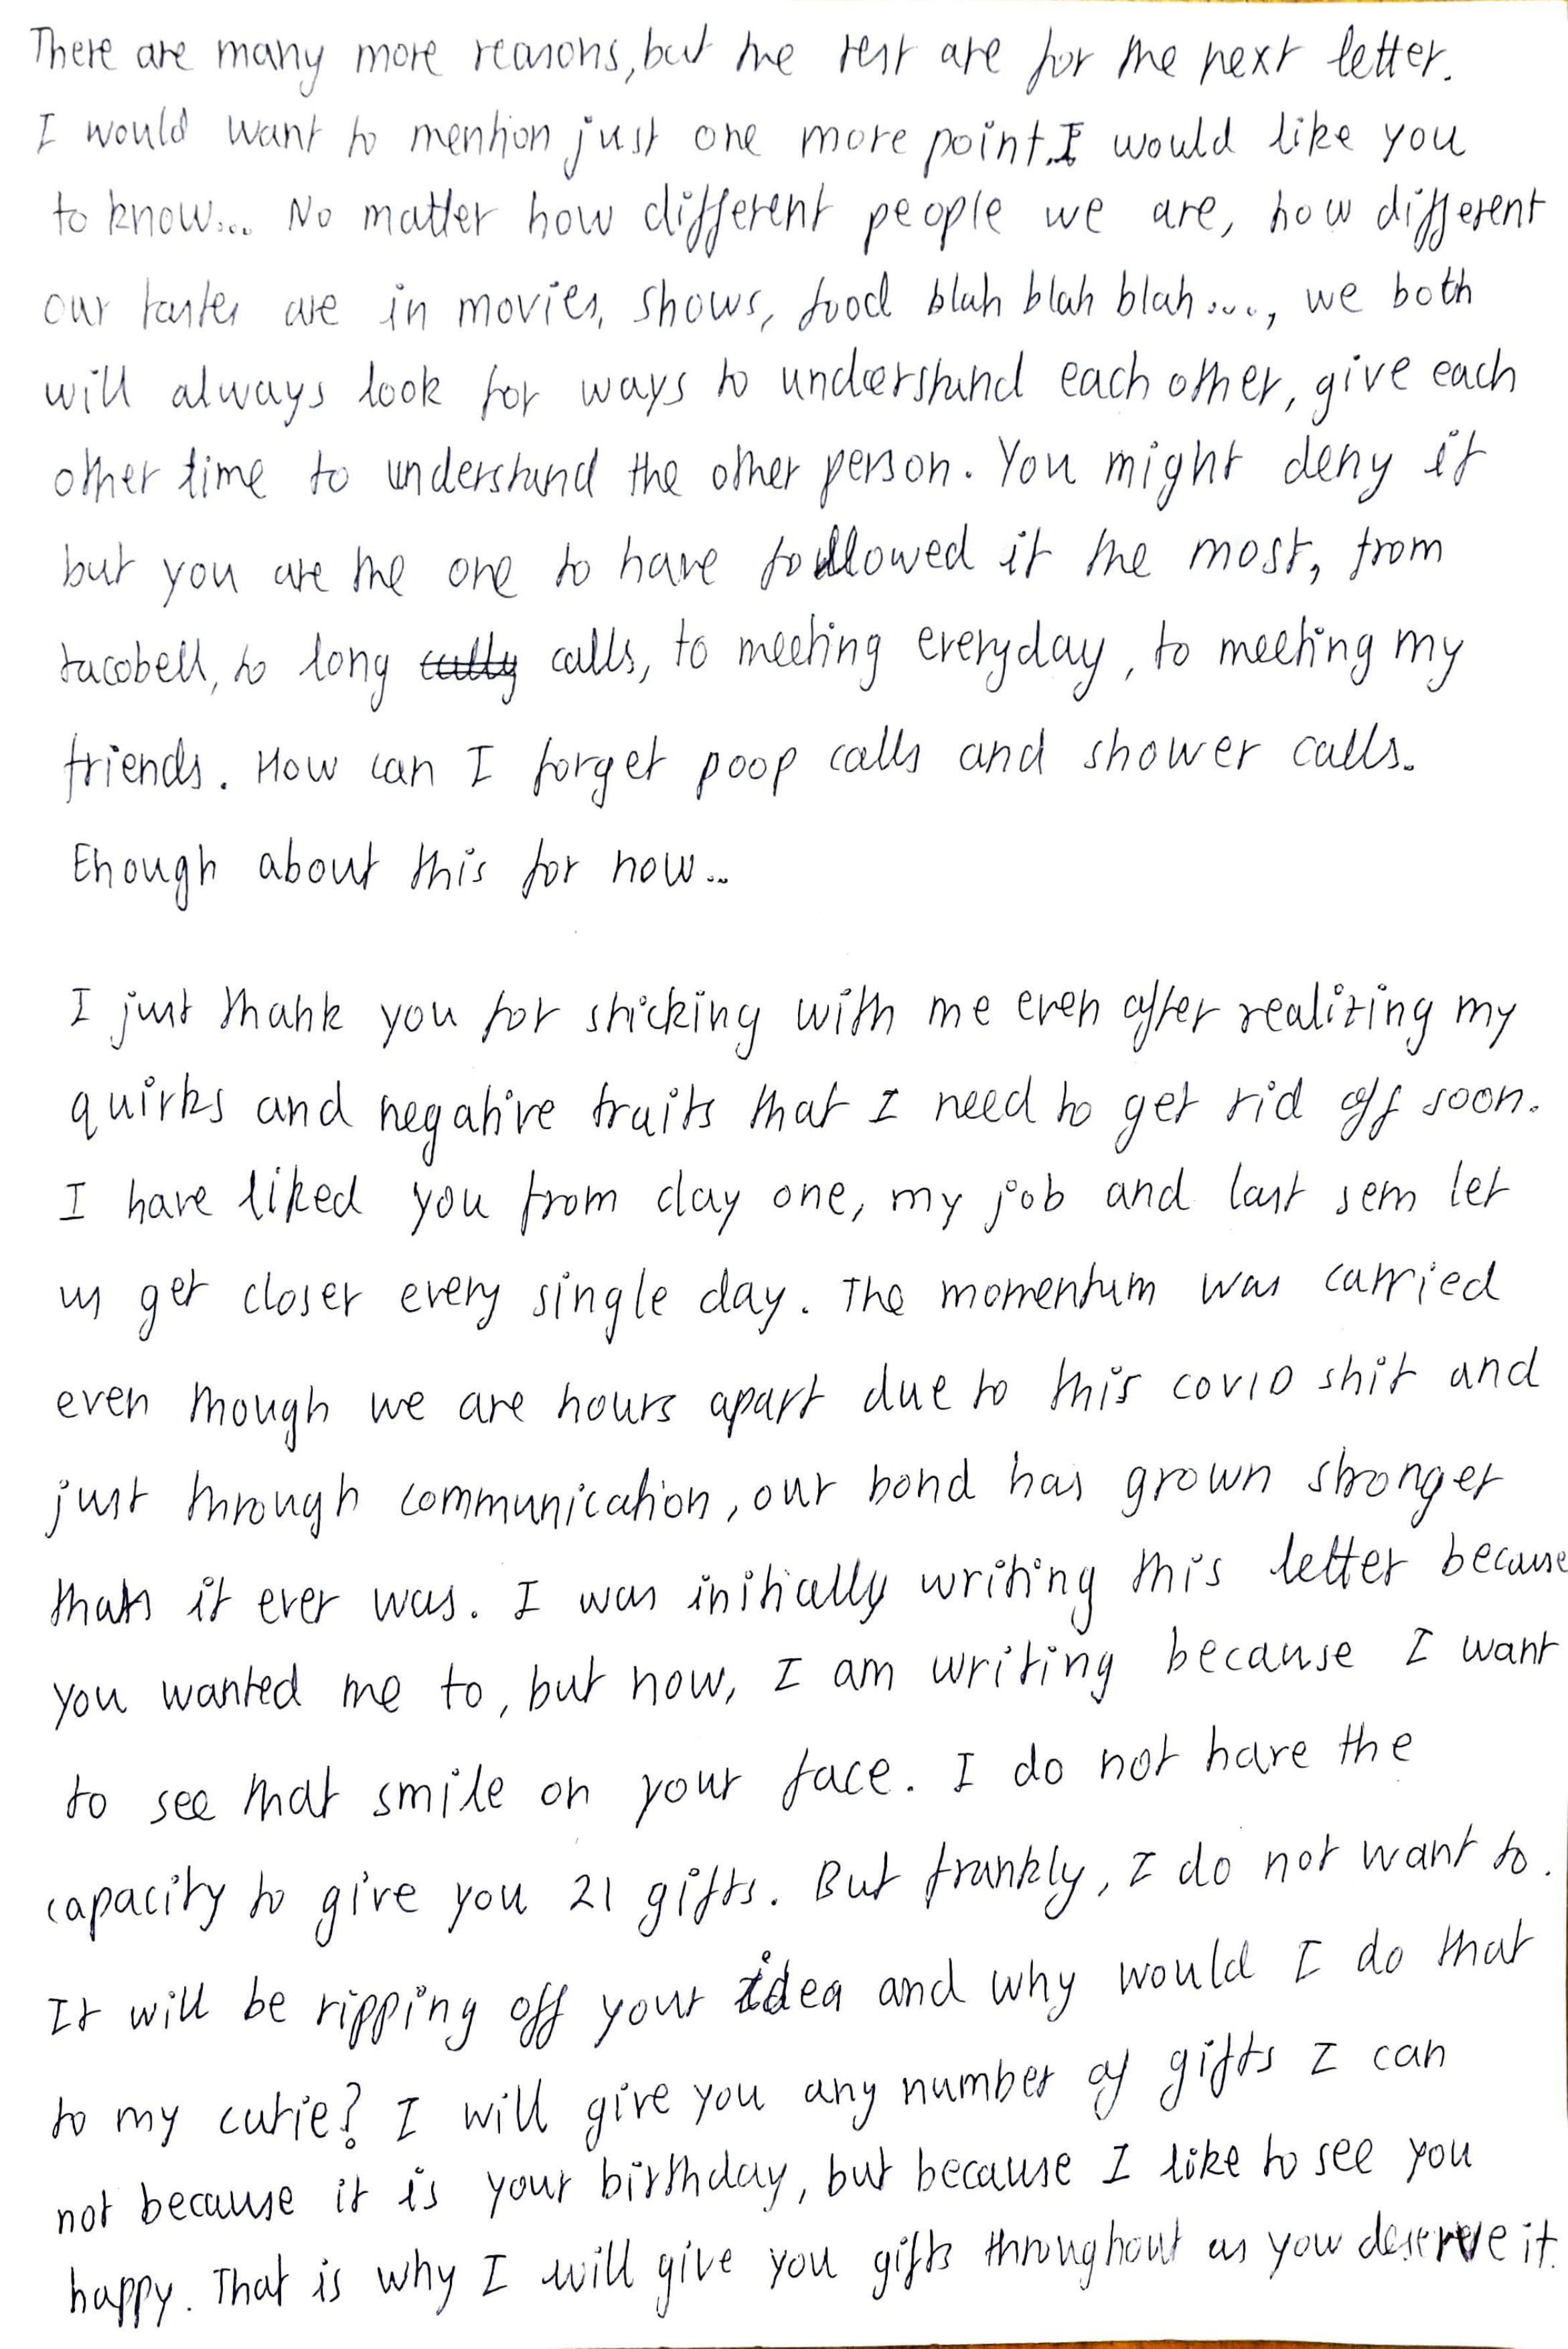 There are many more reasons, but the rest are for the next letter.
I would want to mention just one more point. I would like you
to know... No matter how different people we are, how different
our tastes are in movies, shows, food blah blah blah...., we both
will always look for ways to understand each other, give each
other time to understand the other person. You might deny it
but you are the one to have followed it the most, from
tacobell, to long cally calls, to meeting everyday, to meeting my
friends. How can I forget poop calls and shower calls.
Enough about this for now...
I just thank you for sticking with me even after realizing my
quirks and negative traits that I need to get rid off soon.
I have liked you from day one, my job and last sem let
us get closer every single day. The momentum was carried
even though we are hours apart due to this COVID shit and
just through communication, our bond has grown stronger
than it ever was. I was initially writing this letter because
you wanted me to, but now, I am writing because I want
to see that smile on your face. I do not have the
capacity to give you 21 gifts. But frankly, I do not want to.
It will be ripping off your idea and why would I do that
to my cutie? I will give you any number of gifts I can
not because it is your birthday, but because I like to see you
happy. That is why I will give you gifts throughout as you deserve it.